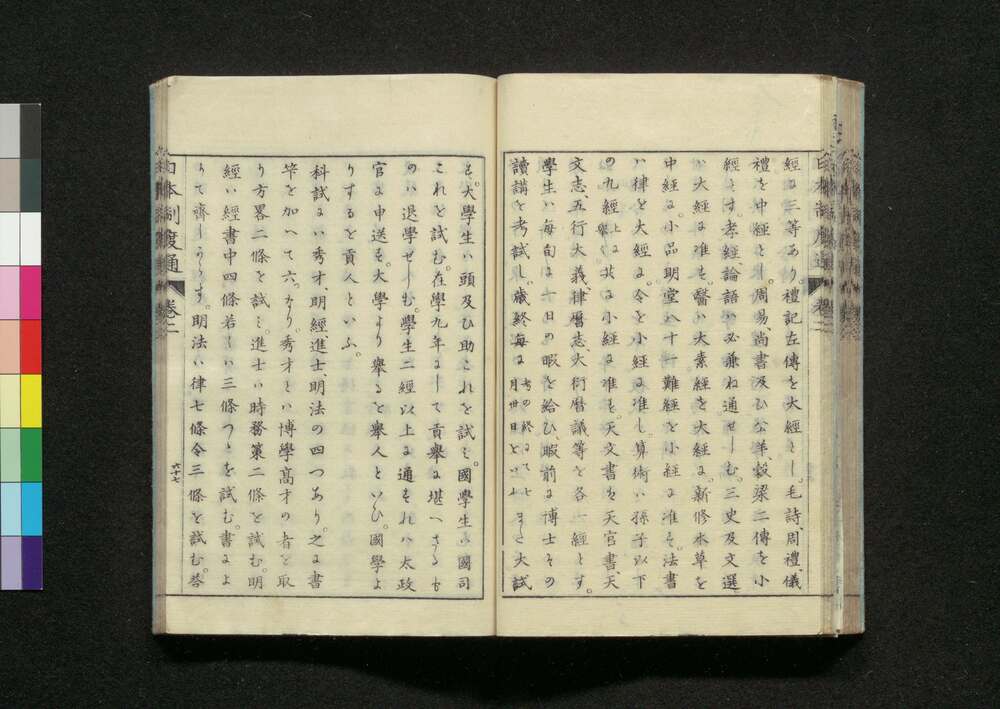 經に三等あり。禮記左傳を大經とし。毛詩、周禮、儀
禮を中經とし。周易、尚書及ひ公羊、穀梁二傳を小
經とす。孝經、論語ハ必兼ね通せしむ。三史及文選
ハ大經に准す。醫ハ大素經を大經に。新修本草を
中經に。小品明堂八十一難經を小經に准す。法書
ハ律を大經に。令を小經に准し。算術ハ孫子以下
の九經上に擧く共に小經に准す。天文書ハ天官書、天
文志、五行大義、律曆志、大衍曆議等を各一經とす。
學生ハ每旬に一日の暇を給ひ、暇前に博士その
讀講を考試し。歲終每に考の終にて七月卅日といふまた大試
す。大學生ハ頭及ひ助これを試ミ。國學生ハ國司
これを試む。在學九年にして貢擧に堪へさるも
のハ退學せしむ。學生二經以上に通すれハ太政
官に申送す。大學より擧るを擧人といひ。國學よ
りするを貢人といふ。
科試にハ秀才、明經進士、明法の四つあり。之に書
筭を加へて六なり。秀才とハ博學高才の者を取
り方畧二條を試ミ。進士ハ時務策二條を試む。明
經ハ經書中四條若しハ三條つゝを試む。書によ
りて齊しからす。明法ハ律七條令三條を試む。筭
日本制度通
卷二
六十七